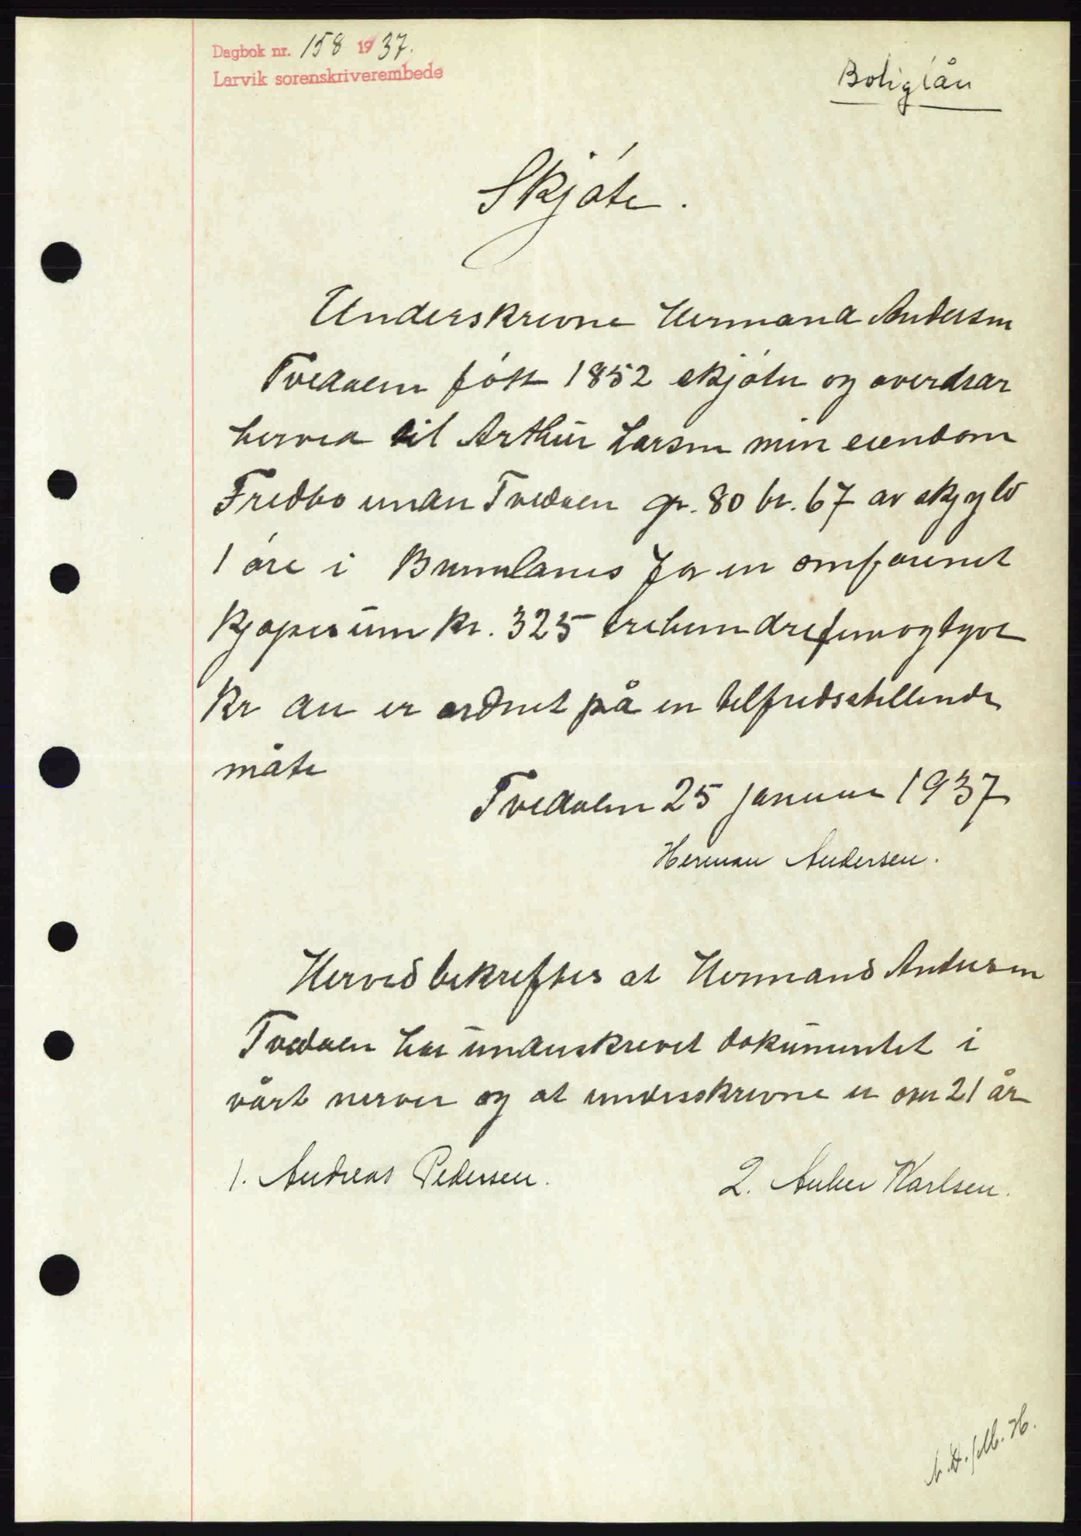 Dagbok nr. 158 1937.
Larvik sorenskriverembede
Boliglån
Skjöte.
Underskrevne Hermand Andersen
Tvedalen född 1852 skjöter og overdrar
herved til Arthur Larsen min eiendom
Fredbo under Tvedalen gr. 80 br. 67 av skjyld
1 öre i Brunlanes for en omforenet
kjöpesum kr. 325 trehundrefemogtyve
kr den er ordnet på en tilfredsstillende
måte
Tvedalen 25 januar 1937
Herman Andersen.
Herved bekreftes at Hermand Andersen
Tvedalen har underskrevet dokumentet i
vårt nerver og at underskrevne er over 21 år
1. Andreas Pedersen.
2. Anker Karlsen.